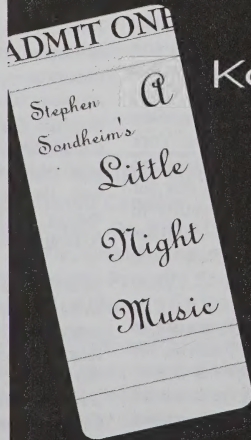 ADMIT ONE
Stephen
Sondheim's
A
Little
Night
Music